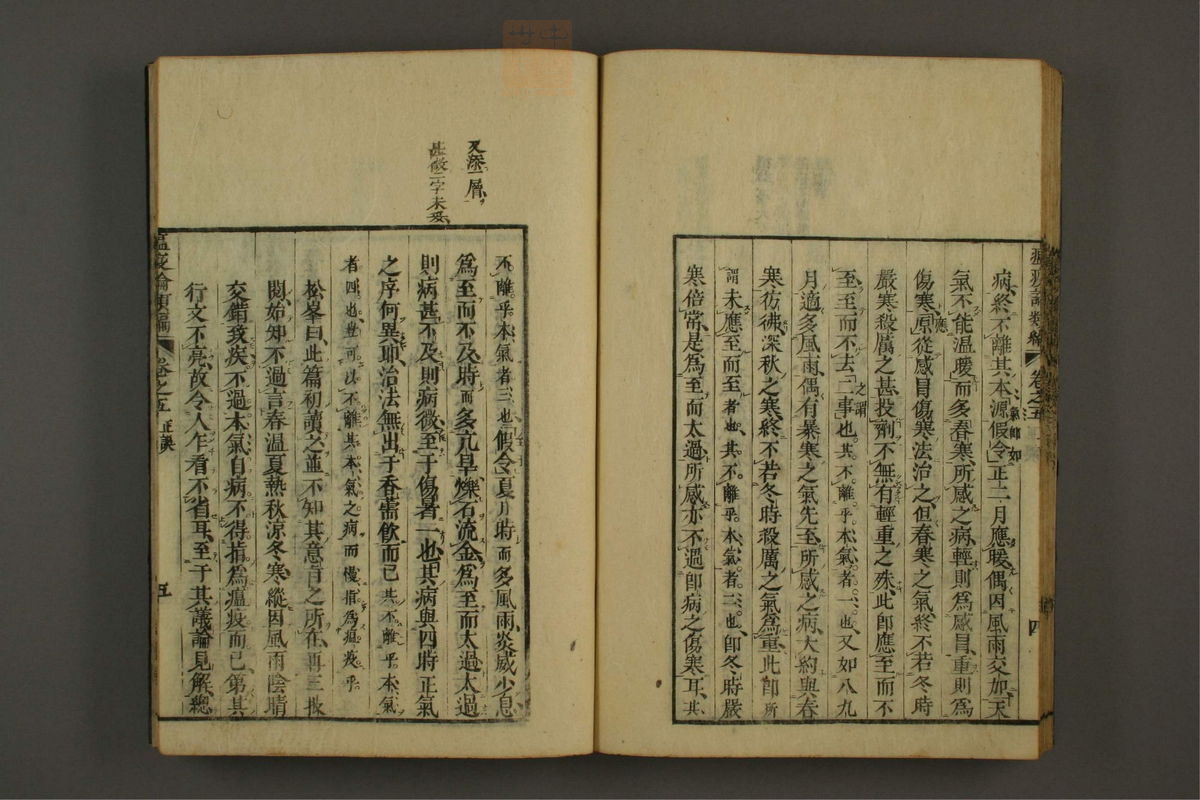 病終不離其本源假令正二月應暖偶因風雨交加天
氣不能溫暖而多春寒所感之病輕則爲感冒重則爲
傷寒原從感冒傷寒法治之但春寒之氣終不若冬時
嚴寒殺厲之甚投劑不無有輕重之殊此即應至而不
至至而不去二事也其不離乎本氣者一也又如八九
月適多風雨偶有暴寒之氣先至所感之病大約與春
寒彷彿深秋之寒終不若冬時殺厲之氣爲重此即所
謂未應至而至者也其不離乎本氣者二也即冬時嚴
寒倍常是爲至而太過所感亦不過即病之傷寒耳其
卷之五
四
又深一層
甚微二字未妥
不離乎本氣者三也假令夏月時而多風雨炎威少息
爲至而不及時而多亢旱爍石流金爲至而太過太過
則病甚不及則病微至于傷暑一也其病與四時正氣
之序何異耶治法無出于香薷飲而已其不離乎本氣
者四也豈可以不離其本氣之病而慢指爲瘟疫乎
松峯曰此篇初讀之並不知其意旨之所在再三披
閱始知不過言春溫夏熱秋涼冬寒縱因風雨陰晴
交錯致疾不過本氣自病不得指爲瘟疫而已第其
行文不亮故令人乍看不省耳至于其議論見解總
瘟疫論類編
卷之五
正誤
五